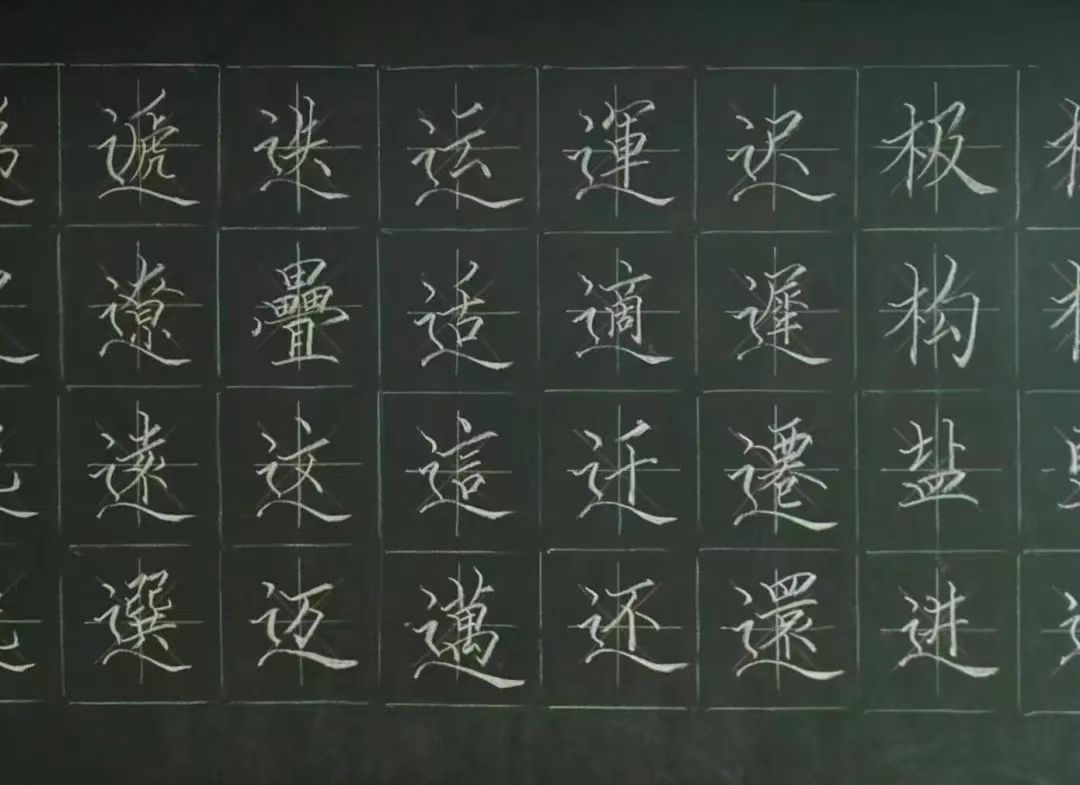 遞迭运運迟极
遼疊适適遲构
遠这這迁遷盐
選迈邁还還进